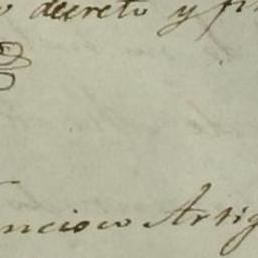 decreto y fi
ncisco Artig